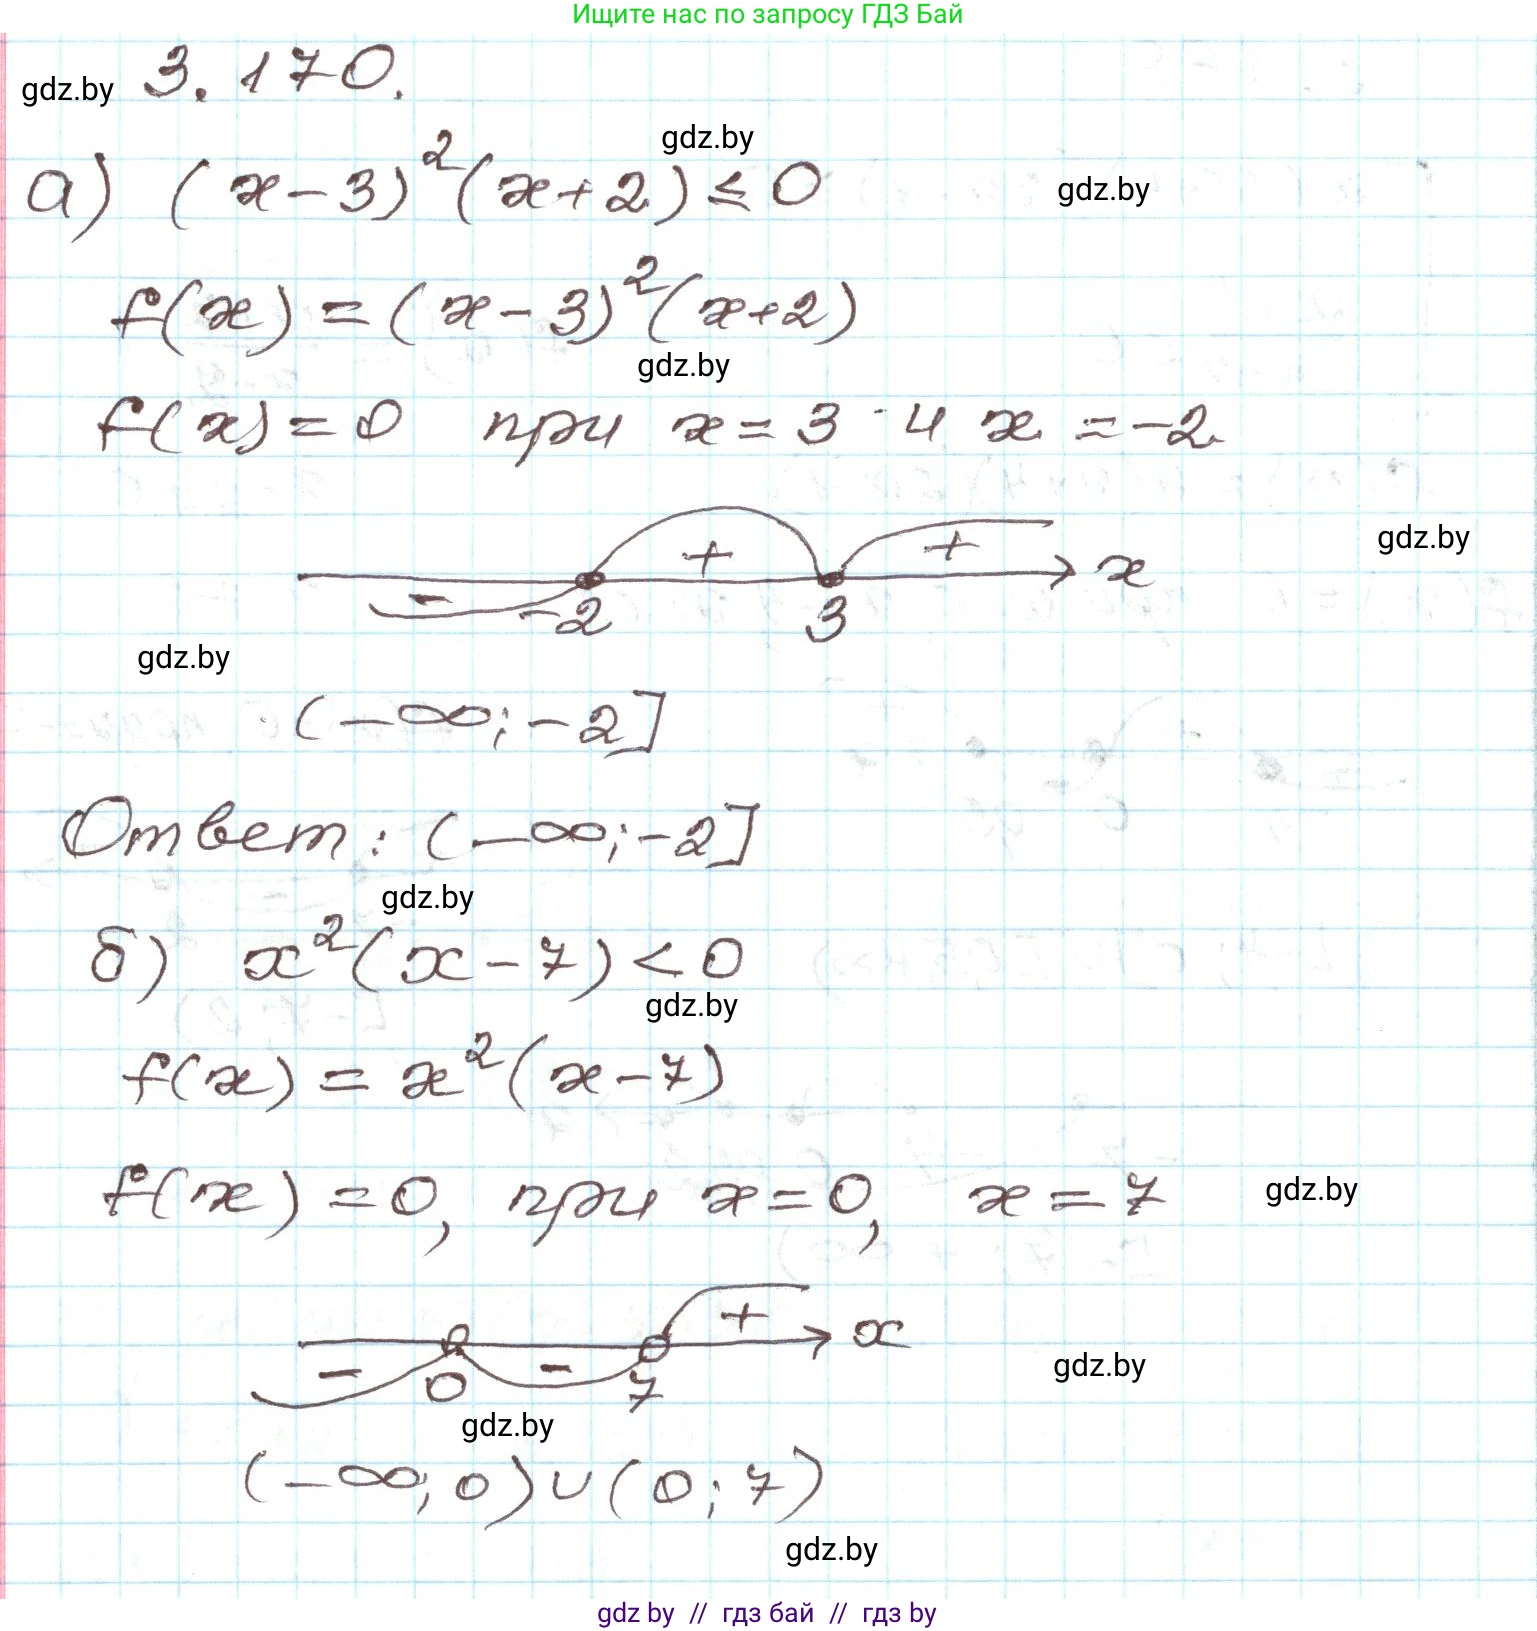 Ищите нас по запросу ГДЗ Бай
gdz.by 3.170.
gdz.by
а) (x-3)²(x+2)≤0 gdz.by
f(x)=(x-3)²(x+2)
gdz.by
f(x)=0 при x=3 и x=-2
+ + x gdz.by
- -2 3
gdz.by
(-∞;-2]
Ответ: (-∞;-2]
gdz.by
б) x²(x-7)<0
gdz.by
f(x)=x²(x-7)
f(x)=0, при x=0, x=7 gdz.by
+ x
- 0 - 7 gdz.by
gdz.by
(-∞;0)∪(0;7)
gdz.by
gdz by // гдз бай // гдз by